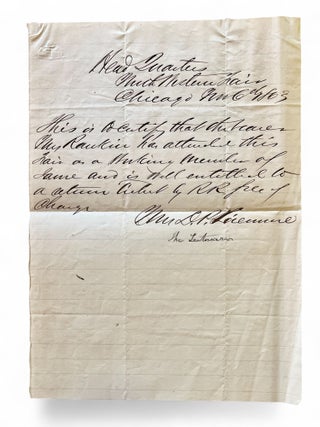 Head Quarters
North Western Fair
Chicago Nov 6th 1863
This is to certify that the bearer
Mrs Rankin has attended this
Fair as a Working member of
Same and is well entitled to
a return ticket by R.R. free of
Charge
Mrs D. P. Livermore